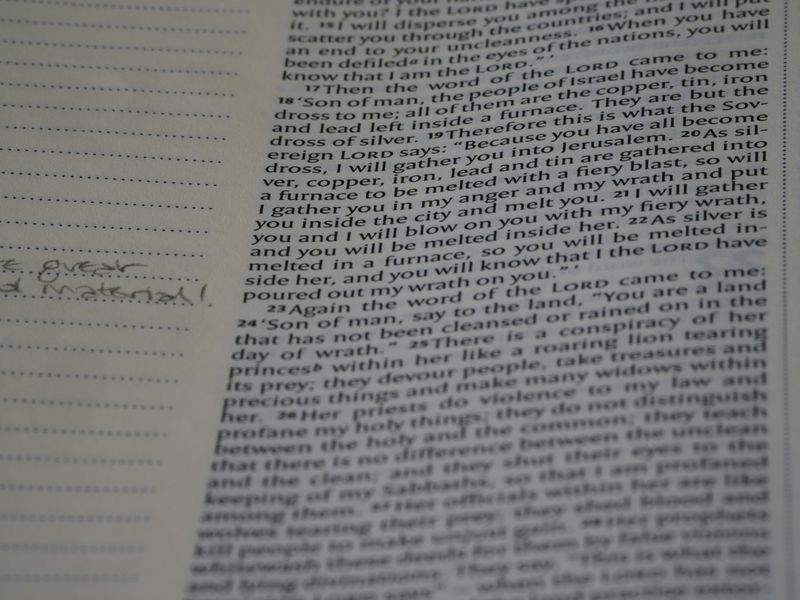 with you? I the LORD have
it. 15 I will disperse you among the
scatter you through the countries; and I will put
an end to your uncleanness. 16 When you have
been defiled a in the eyes of the nations, you will
know that I am the LORD." '
17 Then the word of the LORD came to me:
18 'Son of man, the people of Israel have become
dross to me; all of them are the copper, tin, iron
and lead left inside a furnace. They are but the
dross of silver. 19 Therefore this is what the Sov-
ereign LORD says: "Because you have all become
dross, I will gather you into Jerusalem. 20 As sil-
ver, copper, iron, lead and tin are gathered into
a furnace to be melted with a fiery blast, so will
I gather you in my anger and my wrath and put
you inside the city and melt you. 21 I will gather
you and I will blow on you with my fiery wrath,
and you will be melted inside her. 22 As silver is
melted in a furnace, so you will be melted in-
side her, and you will know that I the LORD have
poured out my wrath on you." '
23 Again the word of the LORD came to me:
24 'Son of man, say to the land, "You are a land
that has not been cleansed or rained on in the
day of wrath." 25 There is a conspiracy of her
princes b within her like a roaring lion tearing
its prey; they devour people, take treasures and
precious things and make many widows within
her. 26 Her priests do violence to my law and
profane my holy things; they do not distinguish
between the holy and the common; they teach
that there is no difference between the unclean
and the clean; and they shut their eyes to the
keeping of my Sabbaths, so that I am profaned
among them. 27 Her officials within her are like
wolves tearing their prey; they shed blood and
kill people to make unjust gain. 28 Her prophets
whitewash these deeds for them by false visions
and lying divinations. They say, "This is what the
material!